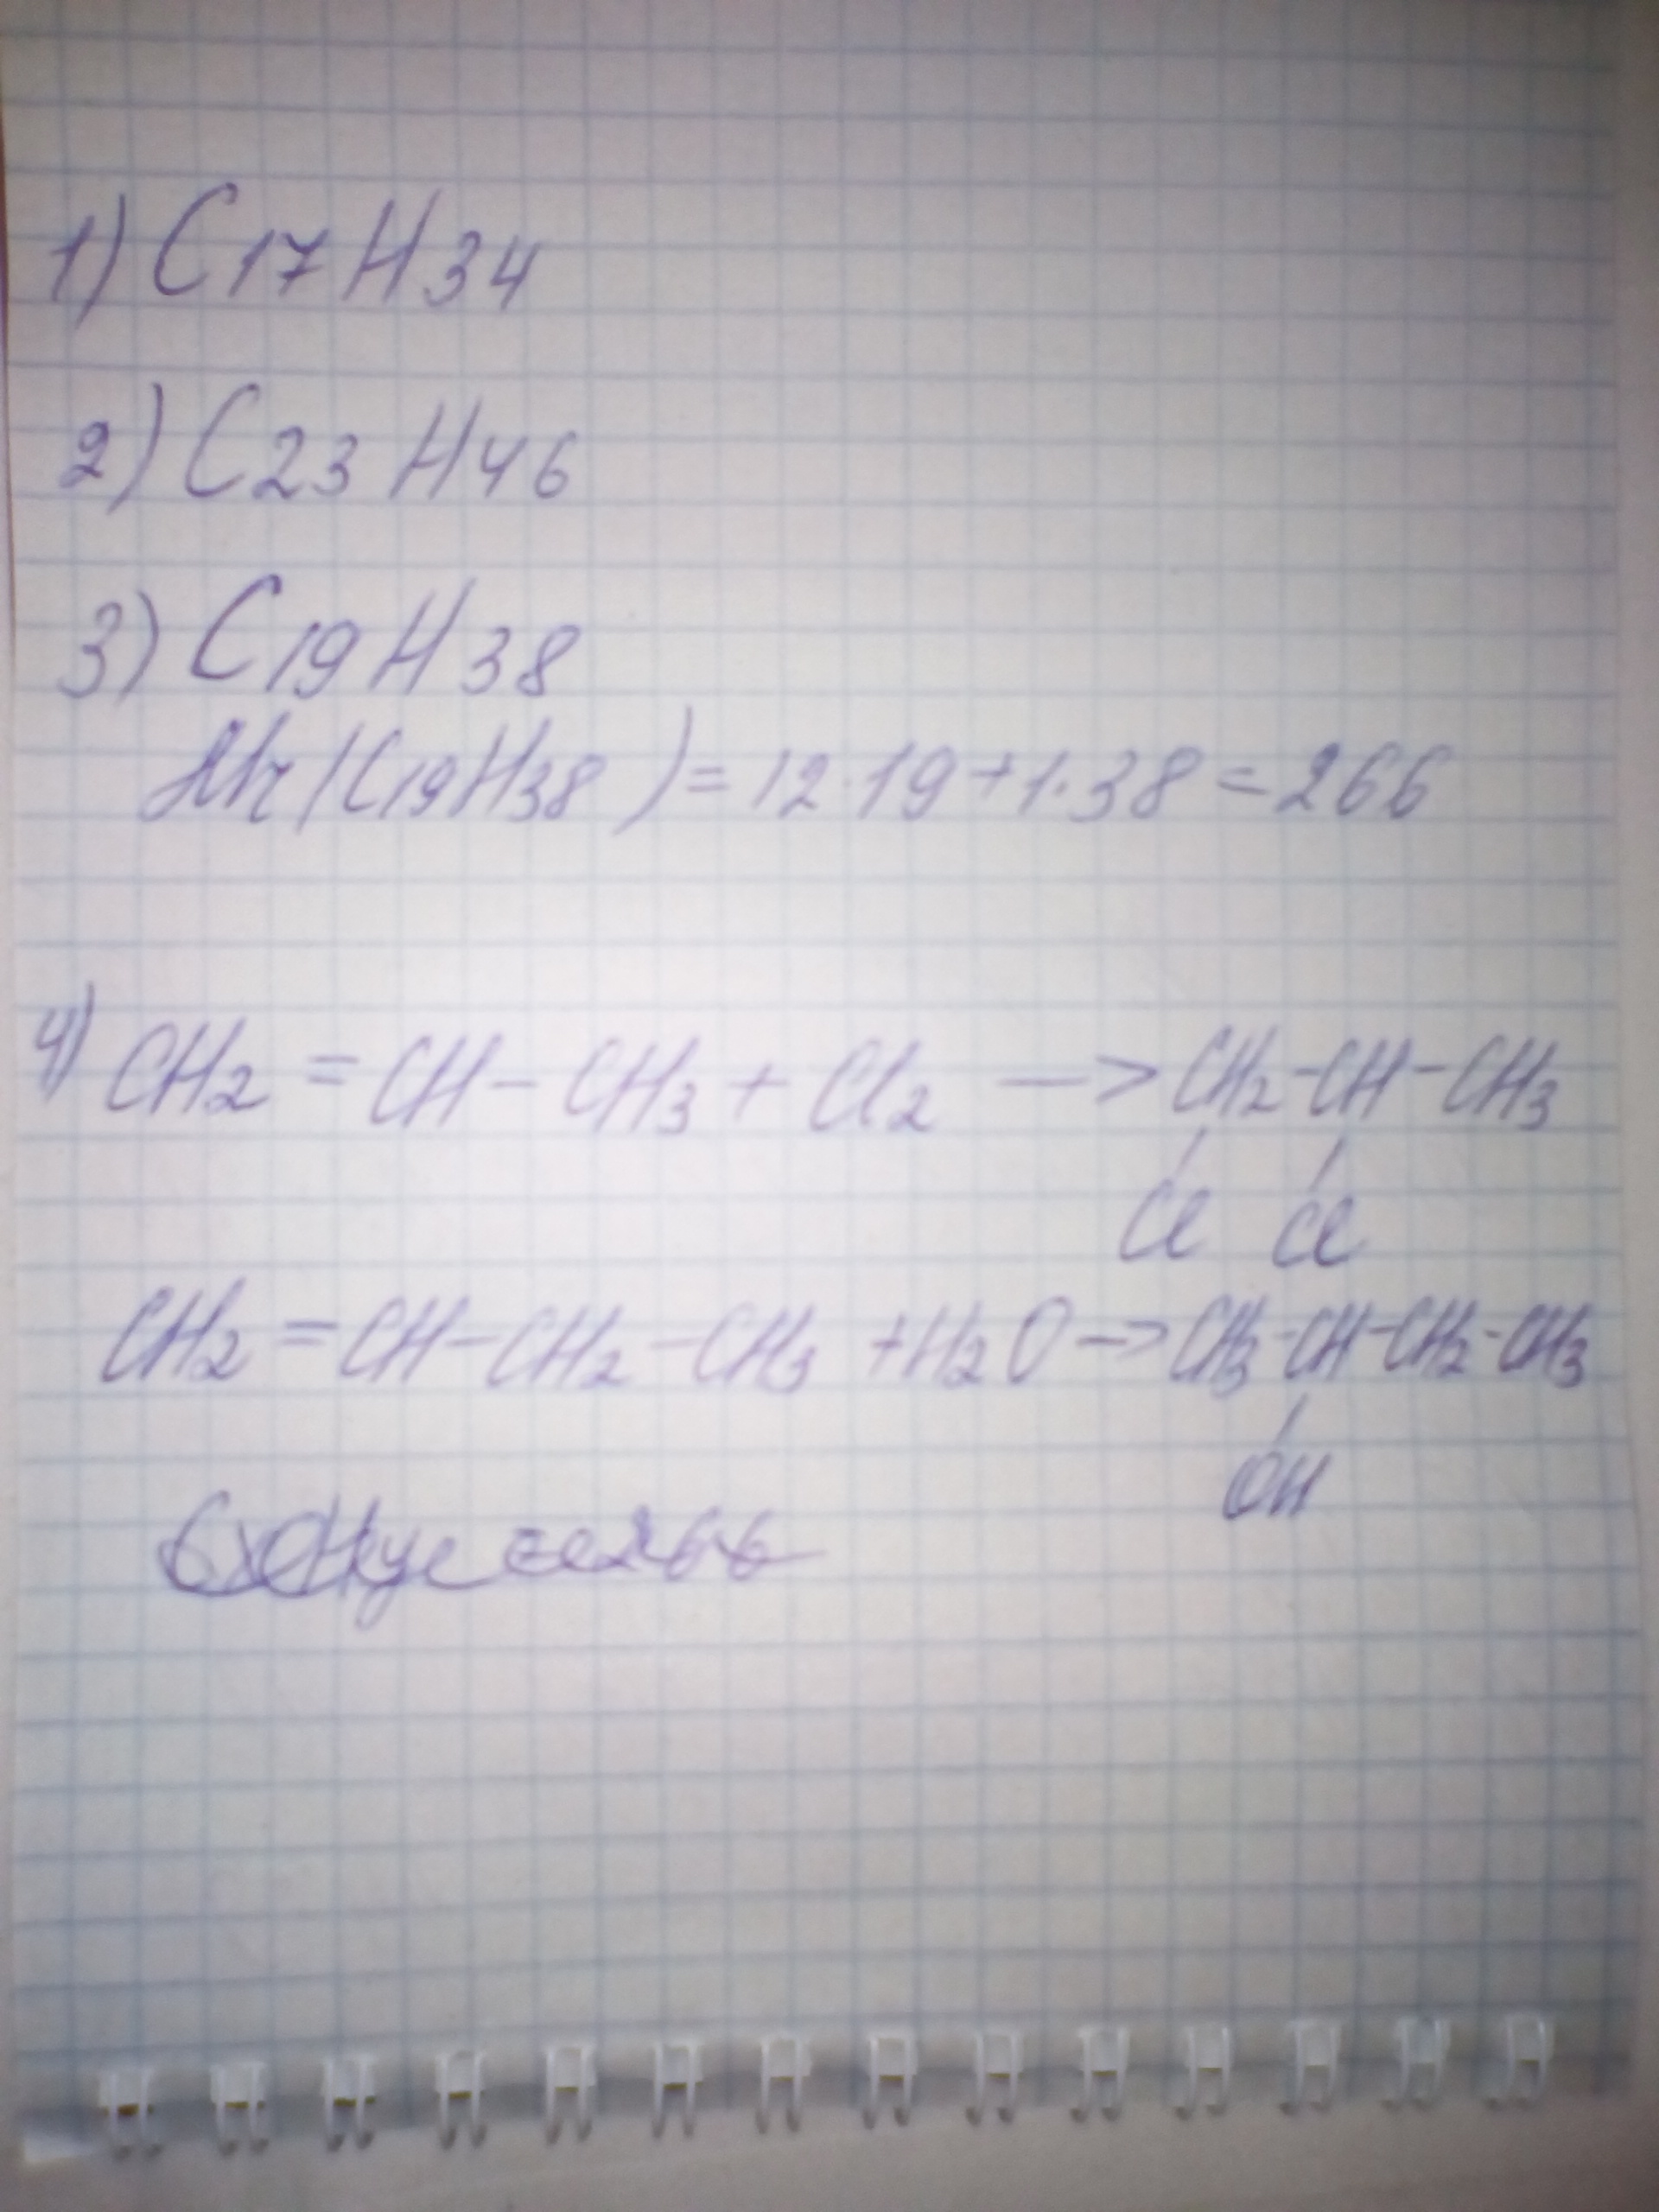 1) C17H34
2) C23H46
3) C19H38
Mr(C19H38) = 12·19+1·38 = 266
4) CH2 = CH - CH3 + Cl2 —> CH2-CH-CH3
Cl Cl
CH2 = CH-CH2-CH3 + H2O —> CH3-CH-CH2-CH3
OH